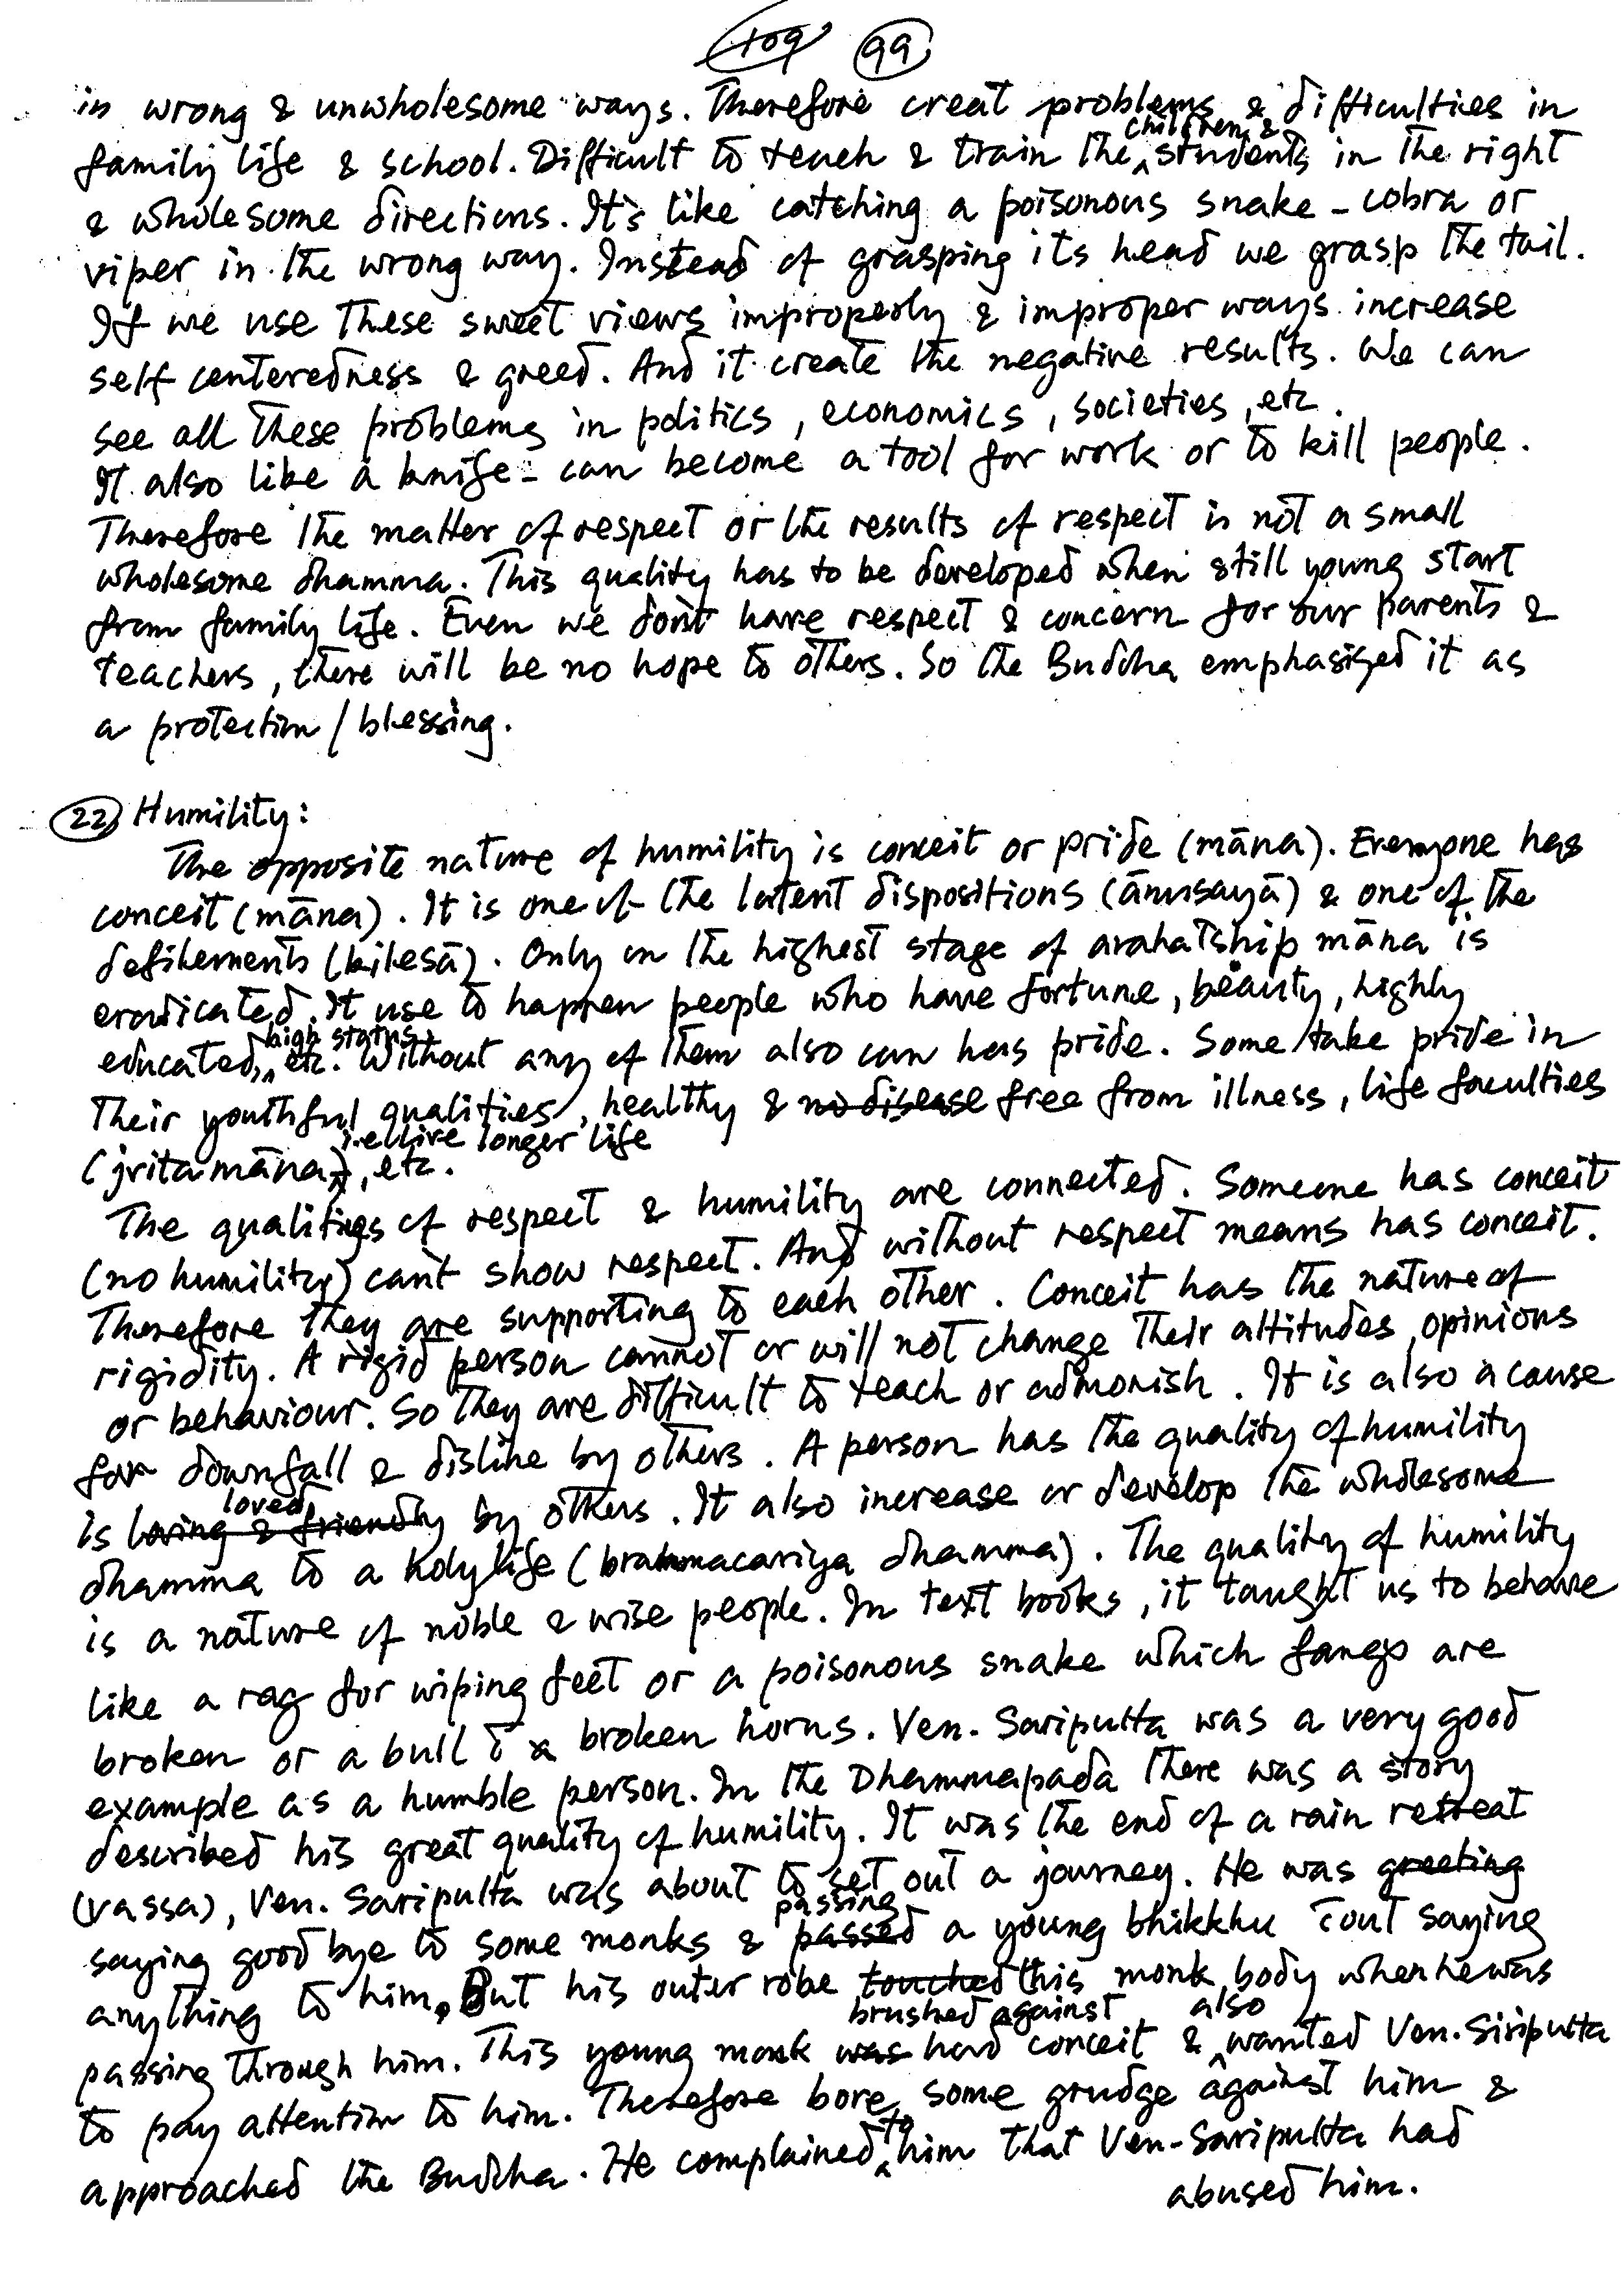 109 99
in wrong & unwholesome ways. Therefore creat problems & difficulties in
family life & school. Difficult to teach & train the children & students in the right
& wholesome directions. It's like catching a poisonous snake - cobra or
viper in the wrong way. Instead of grasping its head we grasp the tail.
If we use these sweet views improperly & improper ways increase
self centeredness & greed. And it create the negative results. We can
see all these problems in politics, economics, societies, etc.
It also like a knife - can become a tool for work or to kill people.
Therefore the matter of respect or the results of respect is not a small
wholesome dhamma. This quality has to be developed when still young start
from family life. Even we don't have respect & concern for our parents &
teachers, there will be no hope to others. So the Buddha emphasized it as
a protection / blessing.
22) Humility:
The opposite nature of humility is conceit or pride (māna). Everyone has
conceit (māna). It is one of the latent dispositions (ānusayā) & one of the
defilements (kilesā). Only in the highest stage of arahatship māna is
eradicated. It use to happen people who have fortune, beauty, highly
educated, high status, etc. Without any of them also can has pride. Some take pride in
their youthful qualities, healthy & no disease free from illness, life faculties
(jvita māna), i.e live longer life, etc.
The qualities of respect & humility are connected. Someone has conceit
(no humility) can't show respect. And without respect means has conceit.
Therefore they are supporting to each other. Conceit has the nature of
rigidity. A rigid person cannot or will not change their attitudes, opinions
or behaviour. So they are difficult to teach or admonish. It is also a cause
for downfall & dislike by others. A person has the quality of humility
is loving & friendly loved by others. It also increase or develop the wholesome
dhamma to a holy life (brahmacariya dhamma). The quality of humility
is a nature of noble & wise people. In text books, it taught us to behave
like a rag for wiping feet or a poisonous snake which fangs are
broken or a bull c̄ a broken horns. Ven. Sariputta was a very good
example as a humble person. In the Dhammapada there was a story
described his great quality of humility. It was the end of a rain retreat
(vassa), Ven. Sariputta was about to set out a journey. He was greeting
saying good bye to some monks & passed passing a young bhikkhu c̄out saying
anything to him. But his outer robe touched brushed against this monk body when he was
passing through him. This young monk was had conceit & also wanted Ven. Siriputta
to pay attention to him. Therefore bore some grudge against him &
approached the Buddha. He complained to him that Ven. Sariputta had
abused him.